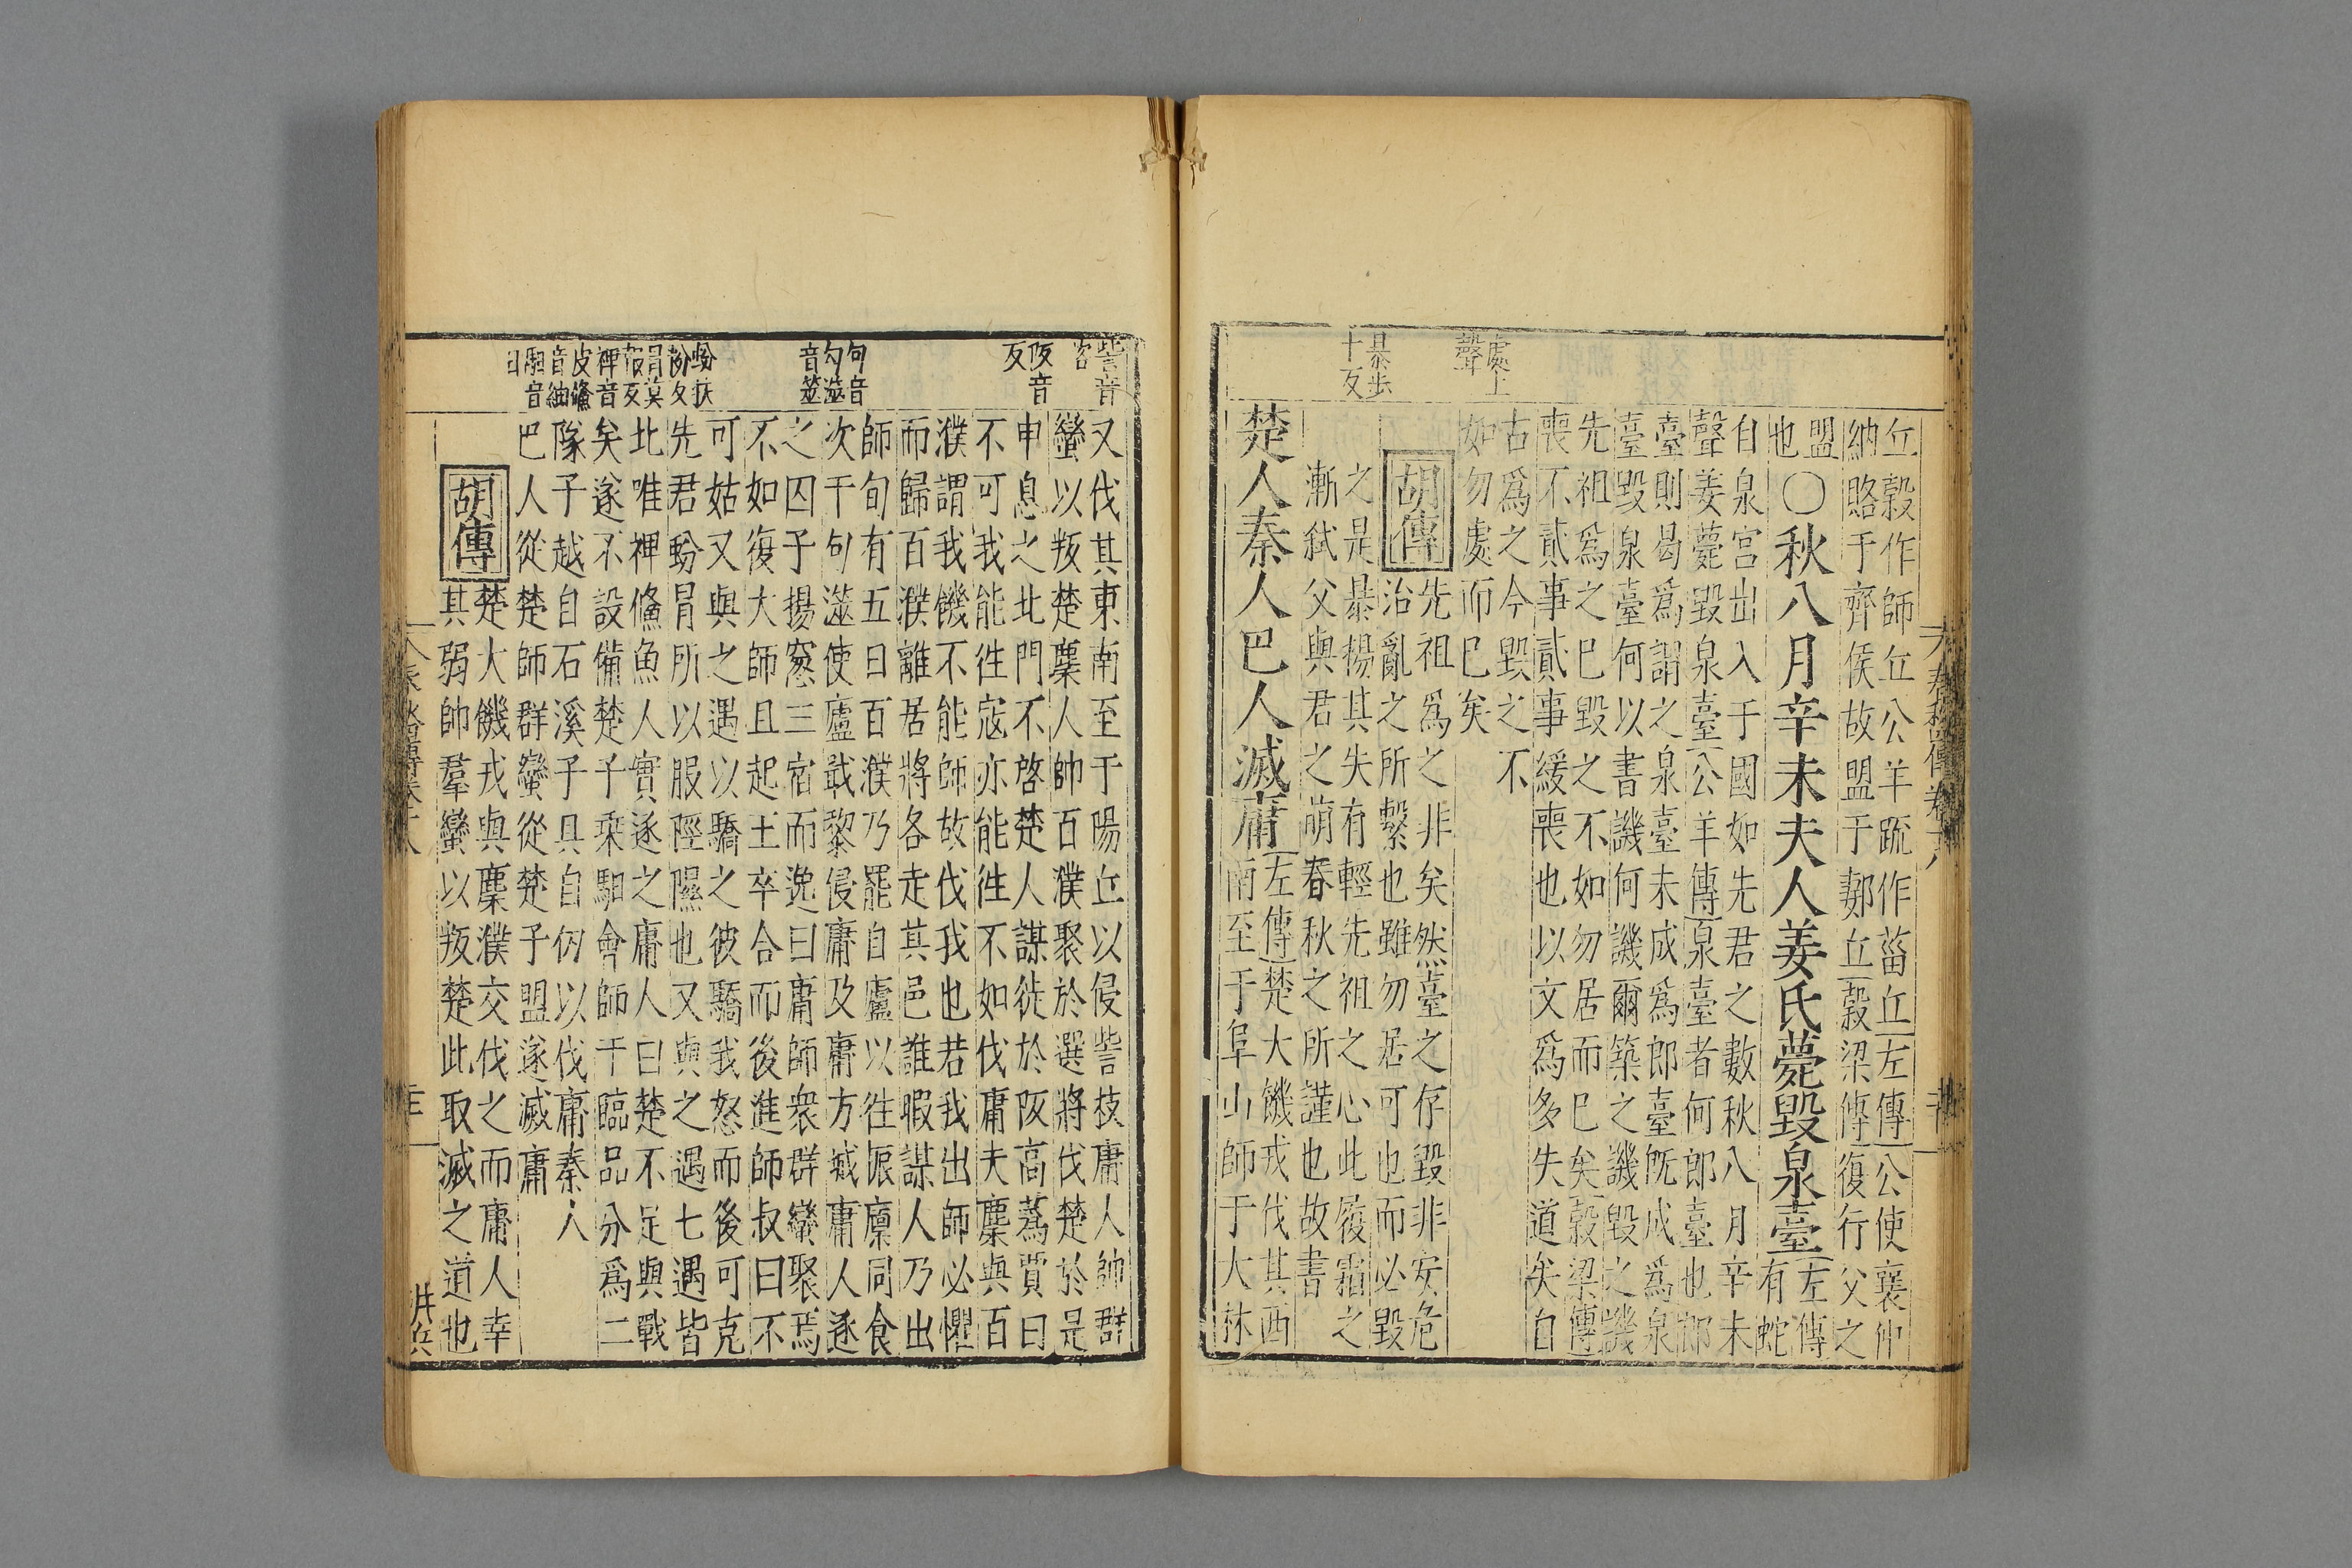 丘穀作師丘公羊䟽作菑丘左傳公使襄仲
納賂于齊侯故盟于郪丘穀梁傳復行父之
盟
也
○秋八月辛未夫人姜氏薨毀泉臺
左傳
有蛇
自泉宮出入于國如先君之數秋八月辛未
聲姜薨毀泉臺公羊傳泉臺者何郎臺也郎
臺則曷爲謂之泉臺未成爲郎臺旣成爲泉
臺毀泉臺何以書譏何譏爾築之譏毀之譏
先祖爲之已毀之不如勿居而已矣穀梁傳
喪不貳事貳事緩喪也以文爲多失道矣自
古爲之今毀之不
如勿處而已矣
處上
聲
胡傳
先祖爲之非矣然臺之存毀非安危
治亂之所繫也雖勿居可也而必毀
之是暴揚其失有輕先祖之心此履霜之
漸弑父與君之萌春秋之所謹也故書
暴步
十反
楚人秦人巴人滅庸
左傳楚大饑戎伐其西
南至于阜山師于大林
訾音
咨
阪音
反
句音
勾澨
音筮
蚡扶
粉反
冐莫
報反
裨音
皮鯈
音紬
馹音
日
又伐其東南至于陽丘以侵訾枝庸人帥群
蠻以叛楚麇人帥百濮聚於選將伐楚於是
申息之北門不啓楚人謀徙於阪高蒍賈曰
不可我能徃寇亦能徃不如伐庸夫麇與百
濮謂我饑不能師故伐我也若我出師必懼
而歸百濮離居將各走其邑誰暇謀人乃出
師旬有五日百濮乃罷自廬以徃振廩同食
次于句澨使廬戢黎侵庸及庸方城庸人逐
之囚子揚窻三宿而逸曰庸師衆群蠻聚焉
不如復大師且起王卒合而後進師叔曰不
可姑又與之遇以驕之彼驕我怒而後可克
先君蚡冐所以服陘隰也又與之遇七遇皆
北唯裨鯈魚人實逐之庸人曰楚不足與戰
矣遂不設備楚子乘馹會師于臨品分爲二
隊子越自石溪子貝自仞以伐庸秦人
巴人從楚師群蠻從楚子盟遂滅庸
胡傳
楚大饑戎與麇濮交伐之而庸人幸
其弱帥羣蠻以叛楚此取滅之道也